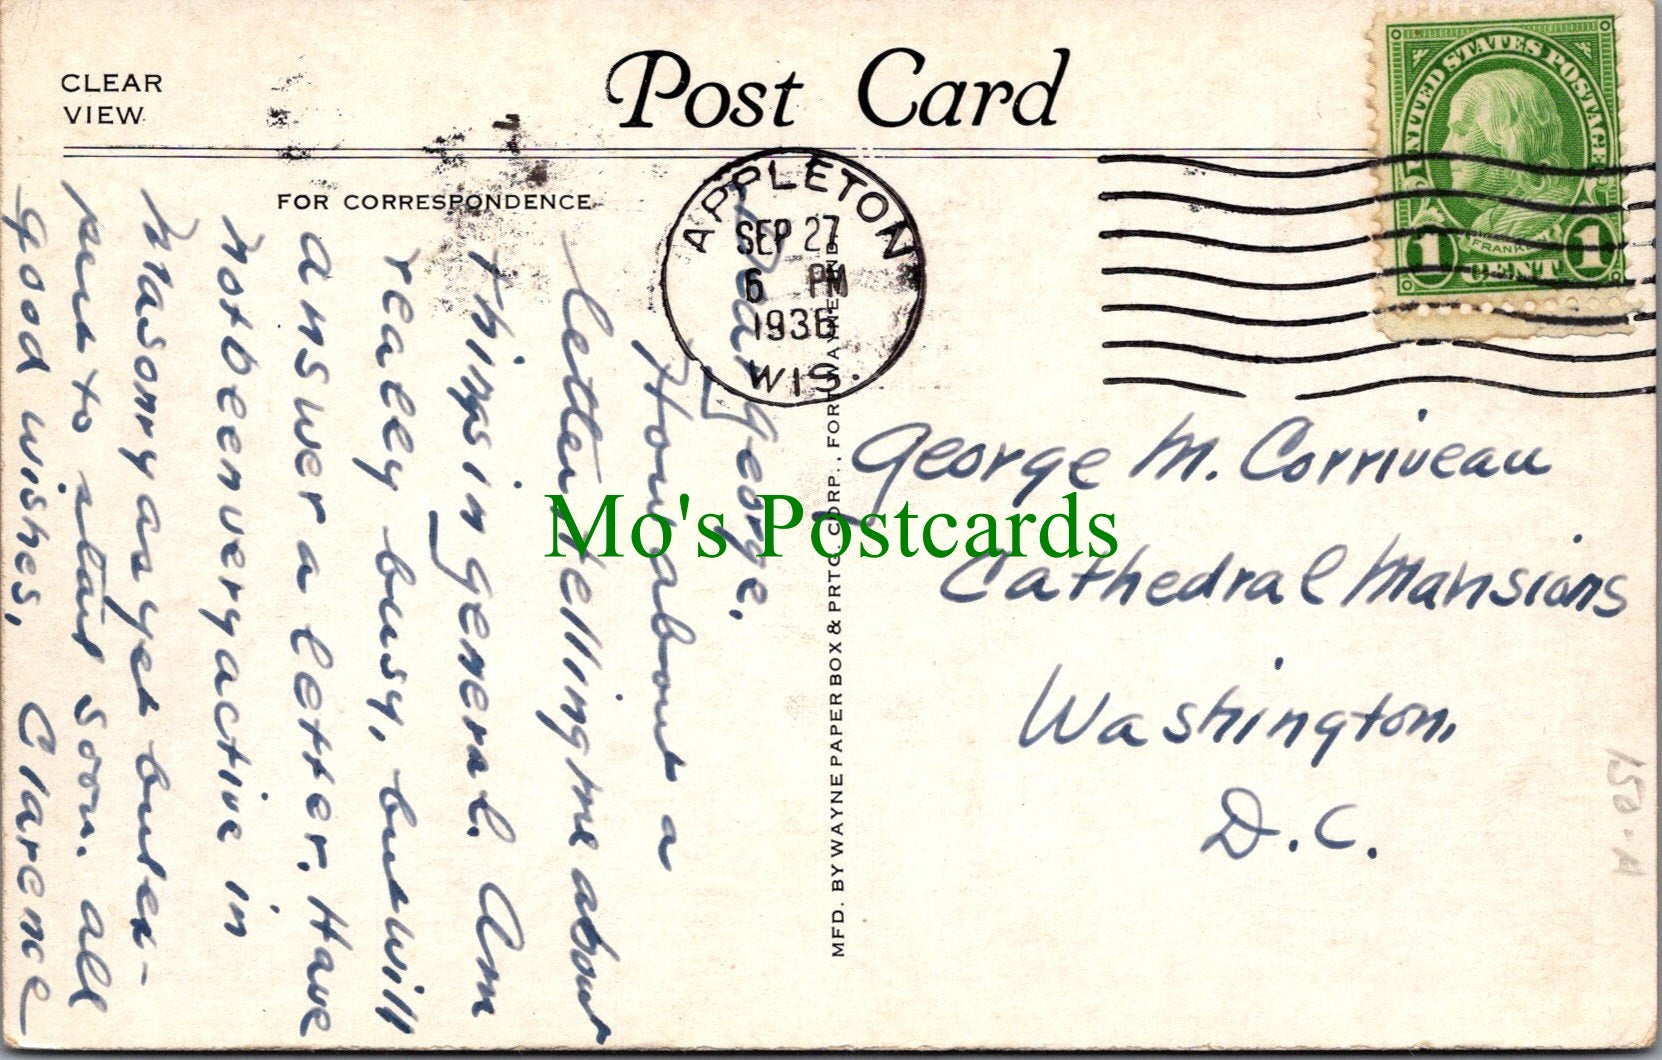 CLEAR
VIEW
Post Card
FOR CORRESPONDENCE
APPLETON
SEP 27
6 PM
1936
WIS.
UNITED STATES POSTAGE
FRANKLIN
1 CENT 1
Dear George.
How about a
letter telling me about
things in general. Am
really busy, but will
answer a letter. Have
not been very active in
Masonry as yet but ex-
pect to start soon. All
good wishes,
Clarence
MFD. BY WAYNE PAPER BOX & PRTG. CORP., FORT WAYNE, IND.
George M. Corriveau
Cathedral Mansions
Washington,
D.C.
Mo's Postcards